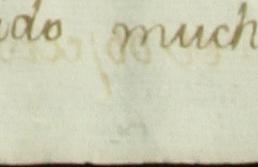 ado much